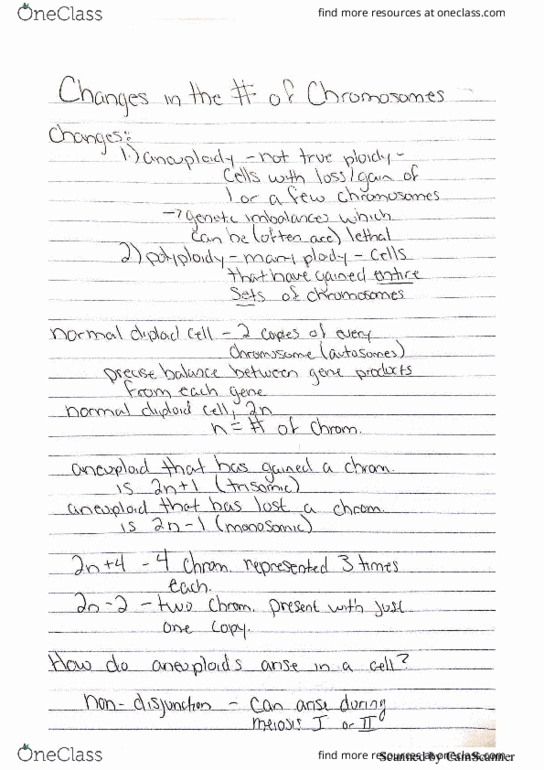 OneClass
find more resources at oneclass.com
Changes in the # of Chromosomes
Changes:
1.) aneuploidy - not true ploidy -
Cells with loss/gain of
1 or a few chromosomes
→ genetic imbalances which
can be (often are) lethal
2) polyploidy - many ploidy - cells
that have gained entire
Sets of chromosomes
normal diploid cell - 2 copies of every
chromosome (autosomes)
precise balance between gene products
from each gene
normal diploid cell, 2n
n = # of chrom.
aneuploid that has gained a chrom.
is 2n+1 (trisomic)
aneuploid that has lost a chrom.
is 2n-1 (monosomic)
2n+4 - 4 chrom. represented 3 times
each.
2n-2 - two chrom. present with just
one copy.
How do aneuploids arise in a cell?
non-disjunction - can arise during
meiosis I or II
OneClass
find more resources at oneclass.com
Scanned by CamScanner